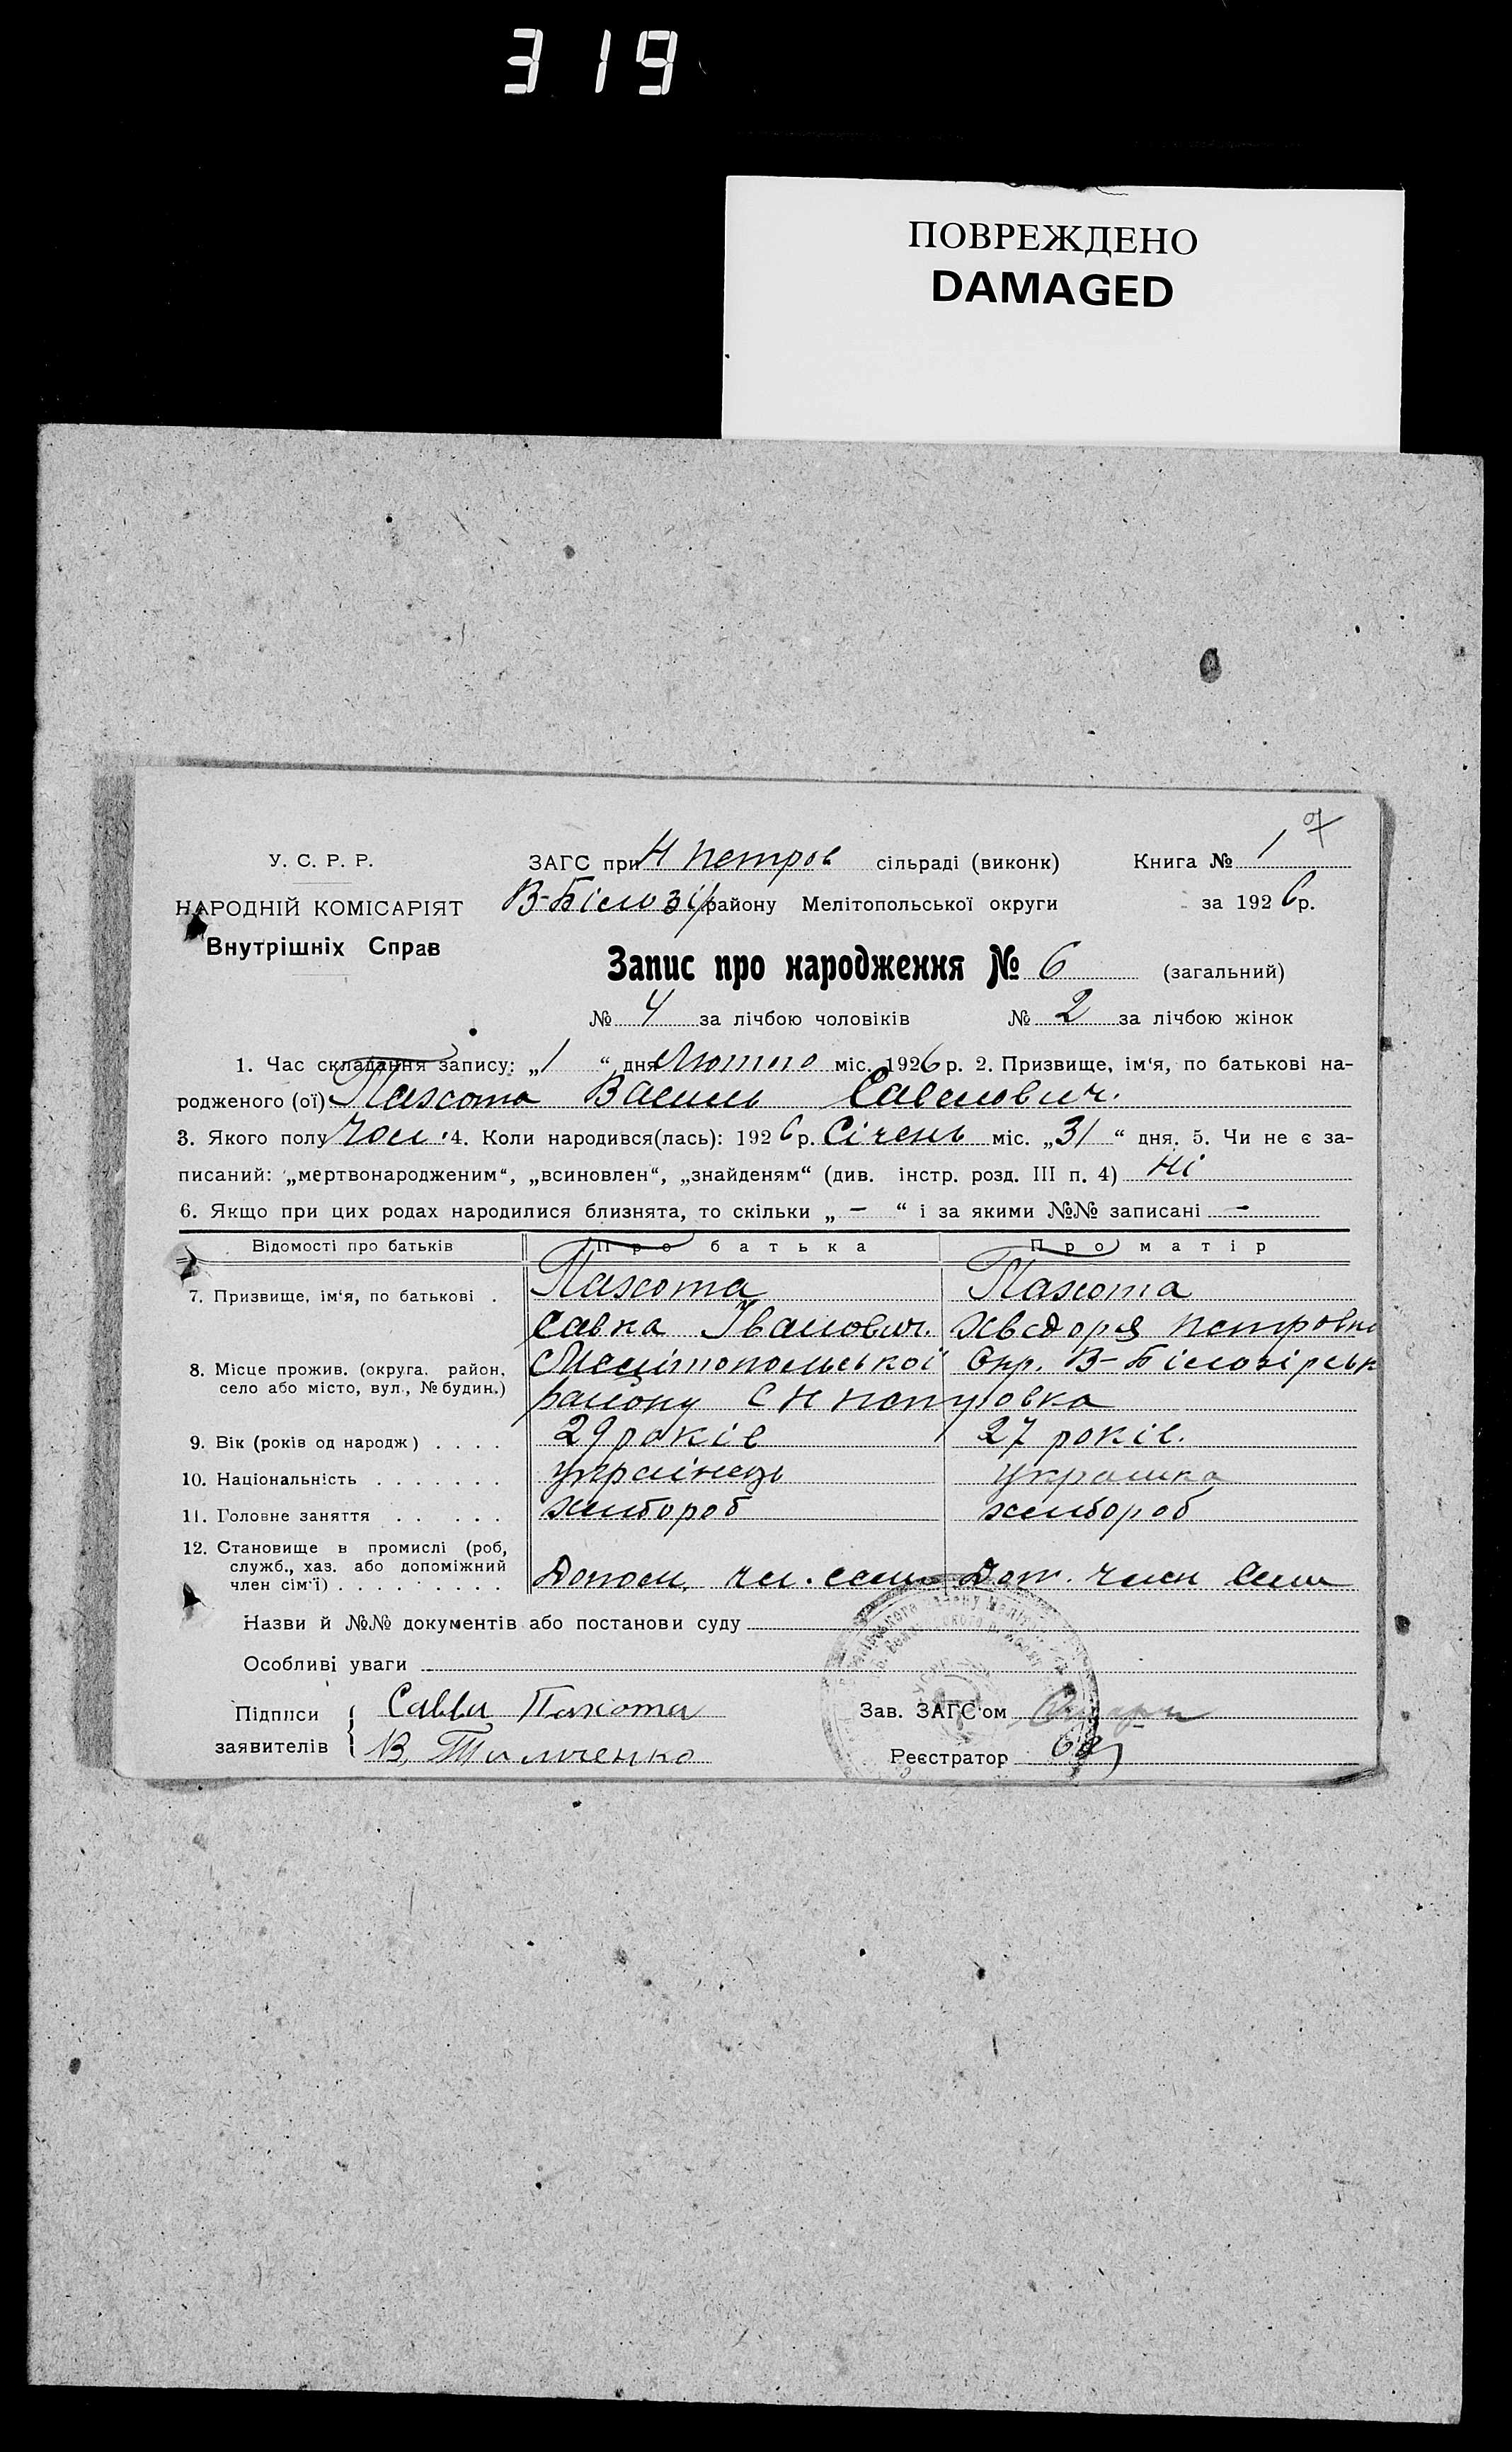 319
ПОВРЕЖДЕНО
DAMAGED
7
У. С. Р. Р. ЗАГС при Н Петров сільраді (виконк) Книга № 1
НАРОДНІЙ КОМІСАРІЯТ В-Білозір району Мелітопольської округи за 1926 р.
Внутрішніх Справ
Запис про народження № 6 (загальний)
№ 4 за лічбою чоловіків № 2 за лічбою жінок
1. Час складання запису: „1“ дня Лютого міс. 1926 р. 2. Призвище, ім‘я, по батькові на-
родженого (ої) Пахота Василь Савелович.
3. Якого полу чол. 4. Коли народився(лась): 1926 р. Січень міс. „31“ дня. 5. Чи не є за-
писаний: „мертвонародженим“, „всиновлен“, „знайденям“ (див. інстр. розд. III п. 4) Ні
6. Якщо при цих родах народилися близнята, то скільки „ — “ і за якими №№ записані —
Відомості про батьків Про батька Про матір
7. Призвище, ім‘я, по батькові . Пахота Пахота
Савка Іванович. Хведоря Петровна
8. Місце прожив. (округа, район, село або місто, вул., № будин.) Мелітопольської Окр. В-Білозірськ
району С Н Петровка
9. Вік (років од народж) . . . . 29 років 27 років.
10. Національність . . . . . . . українець украинка
11. Головне заняття . . . . . хлібороб хлібороб
12. Становище в промислі (роб,
служб., хаз. або допоміжний
член сім‘ї) . . . . . . . . . Допом. чл. семи Доп. член семи
Назви й №№ документів або постанови суду
Особливі уваги
Підписи заявителів { Савва Пахота Зав. ЗАГС‘ом
В. Тимченко Реєстратор